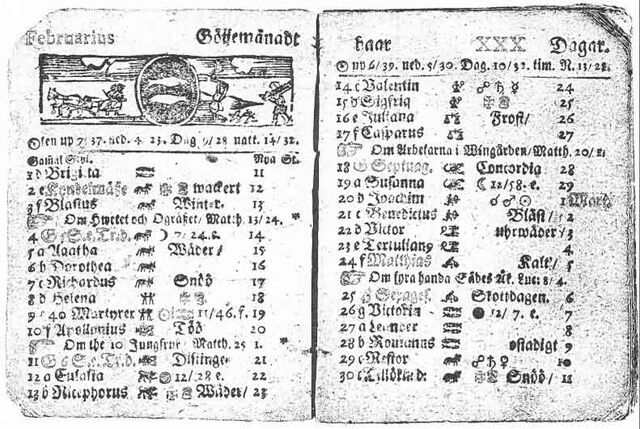 Februarius Göijemånadt
Gamal Styl. Nya St.
1 d Brigita 11
2 e Kyndelmässe wackert 12
3 f Blasius Winter. 13
Om Hwetet och Ogräset, Matth. 13/24.
4 G 5 e. Tr. d. 7/24. e. 14
5 a Agatha Wäder/ 15
6 b Dorothea 16
7 c Richardus Snöö 17
8 d Helena 18
9 40 Martyrer 11/46. f. 19
10 f Apollonius Töö 20
Om the 10 Jungfrur. Matth. 25 1.
11 G 6 S. e. Tr. D. Distinge- 21
12 a Eulalia 12/28 e. 22
13 b Nicephorus Wäder/ 23
haar XXX Dagar.
up 6/39. ned. 5/30. Dag. 10/32. tim. N. 13/28.
14 c Valentin ☍ ♄ ☿ 24
15 d Sigfrid 25
16 e Juliana Frost/ 26
17 f Casparus 27
Om Arbetarna i Wingården/ Matth. 20/1.
18 G Septuag. Concordia 28
19 a Susanna ☾ 12/58. e. 29
20 b Joachim 1 Mart.
21 c Benedictus Bläst/ 2
22 d Victor uhrwäder/ 3
23 e Tertullany
24 f Matthias Kalt/ 5
Om fyra handa Sädes Åk. Luc. 8/4.
25 G Sexages. Skottdagen. 6
26 g Victorin 12/7. e. 7
27 a Leander 8
28 b Romanus ostadigt 9
29 c Nestor ☍ ♄ ♀ 10
30 c Snöö/ 11